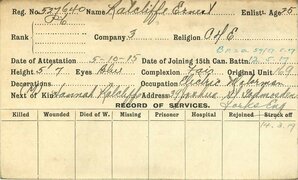 Reg. No. 527640 Name Ratcliffe Ernest Enlistt. Age 35
Pte
Rank Company 3 Religion C of E
Date of Attestation 5-10-15 Date of Joining 15th Can. Battn.
Height 5' 7 Eyes Blue Complexion Fair Original Unit
Decorations Occupation
Next of Kin Hannah Ratcliff Address Joshua St Todmorden
RECORD OF SERVICES. Yorks Eng
Killed Wounded Died of W. Missing Prisoner Hospital Rejoined Struck off
14.3.19